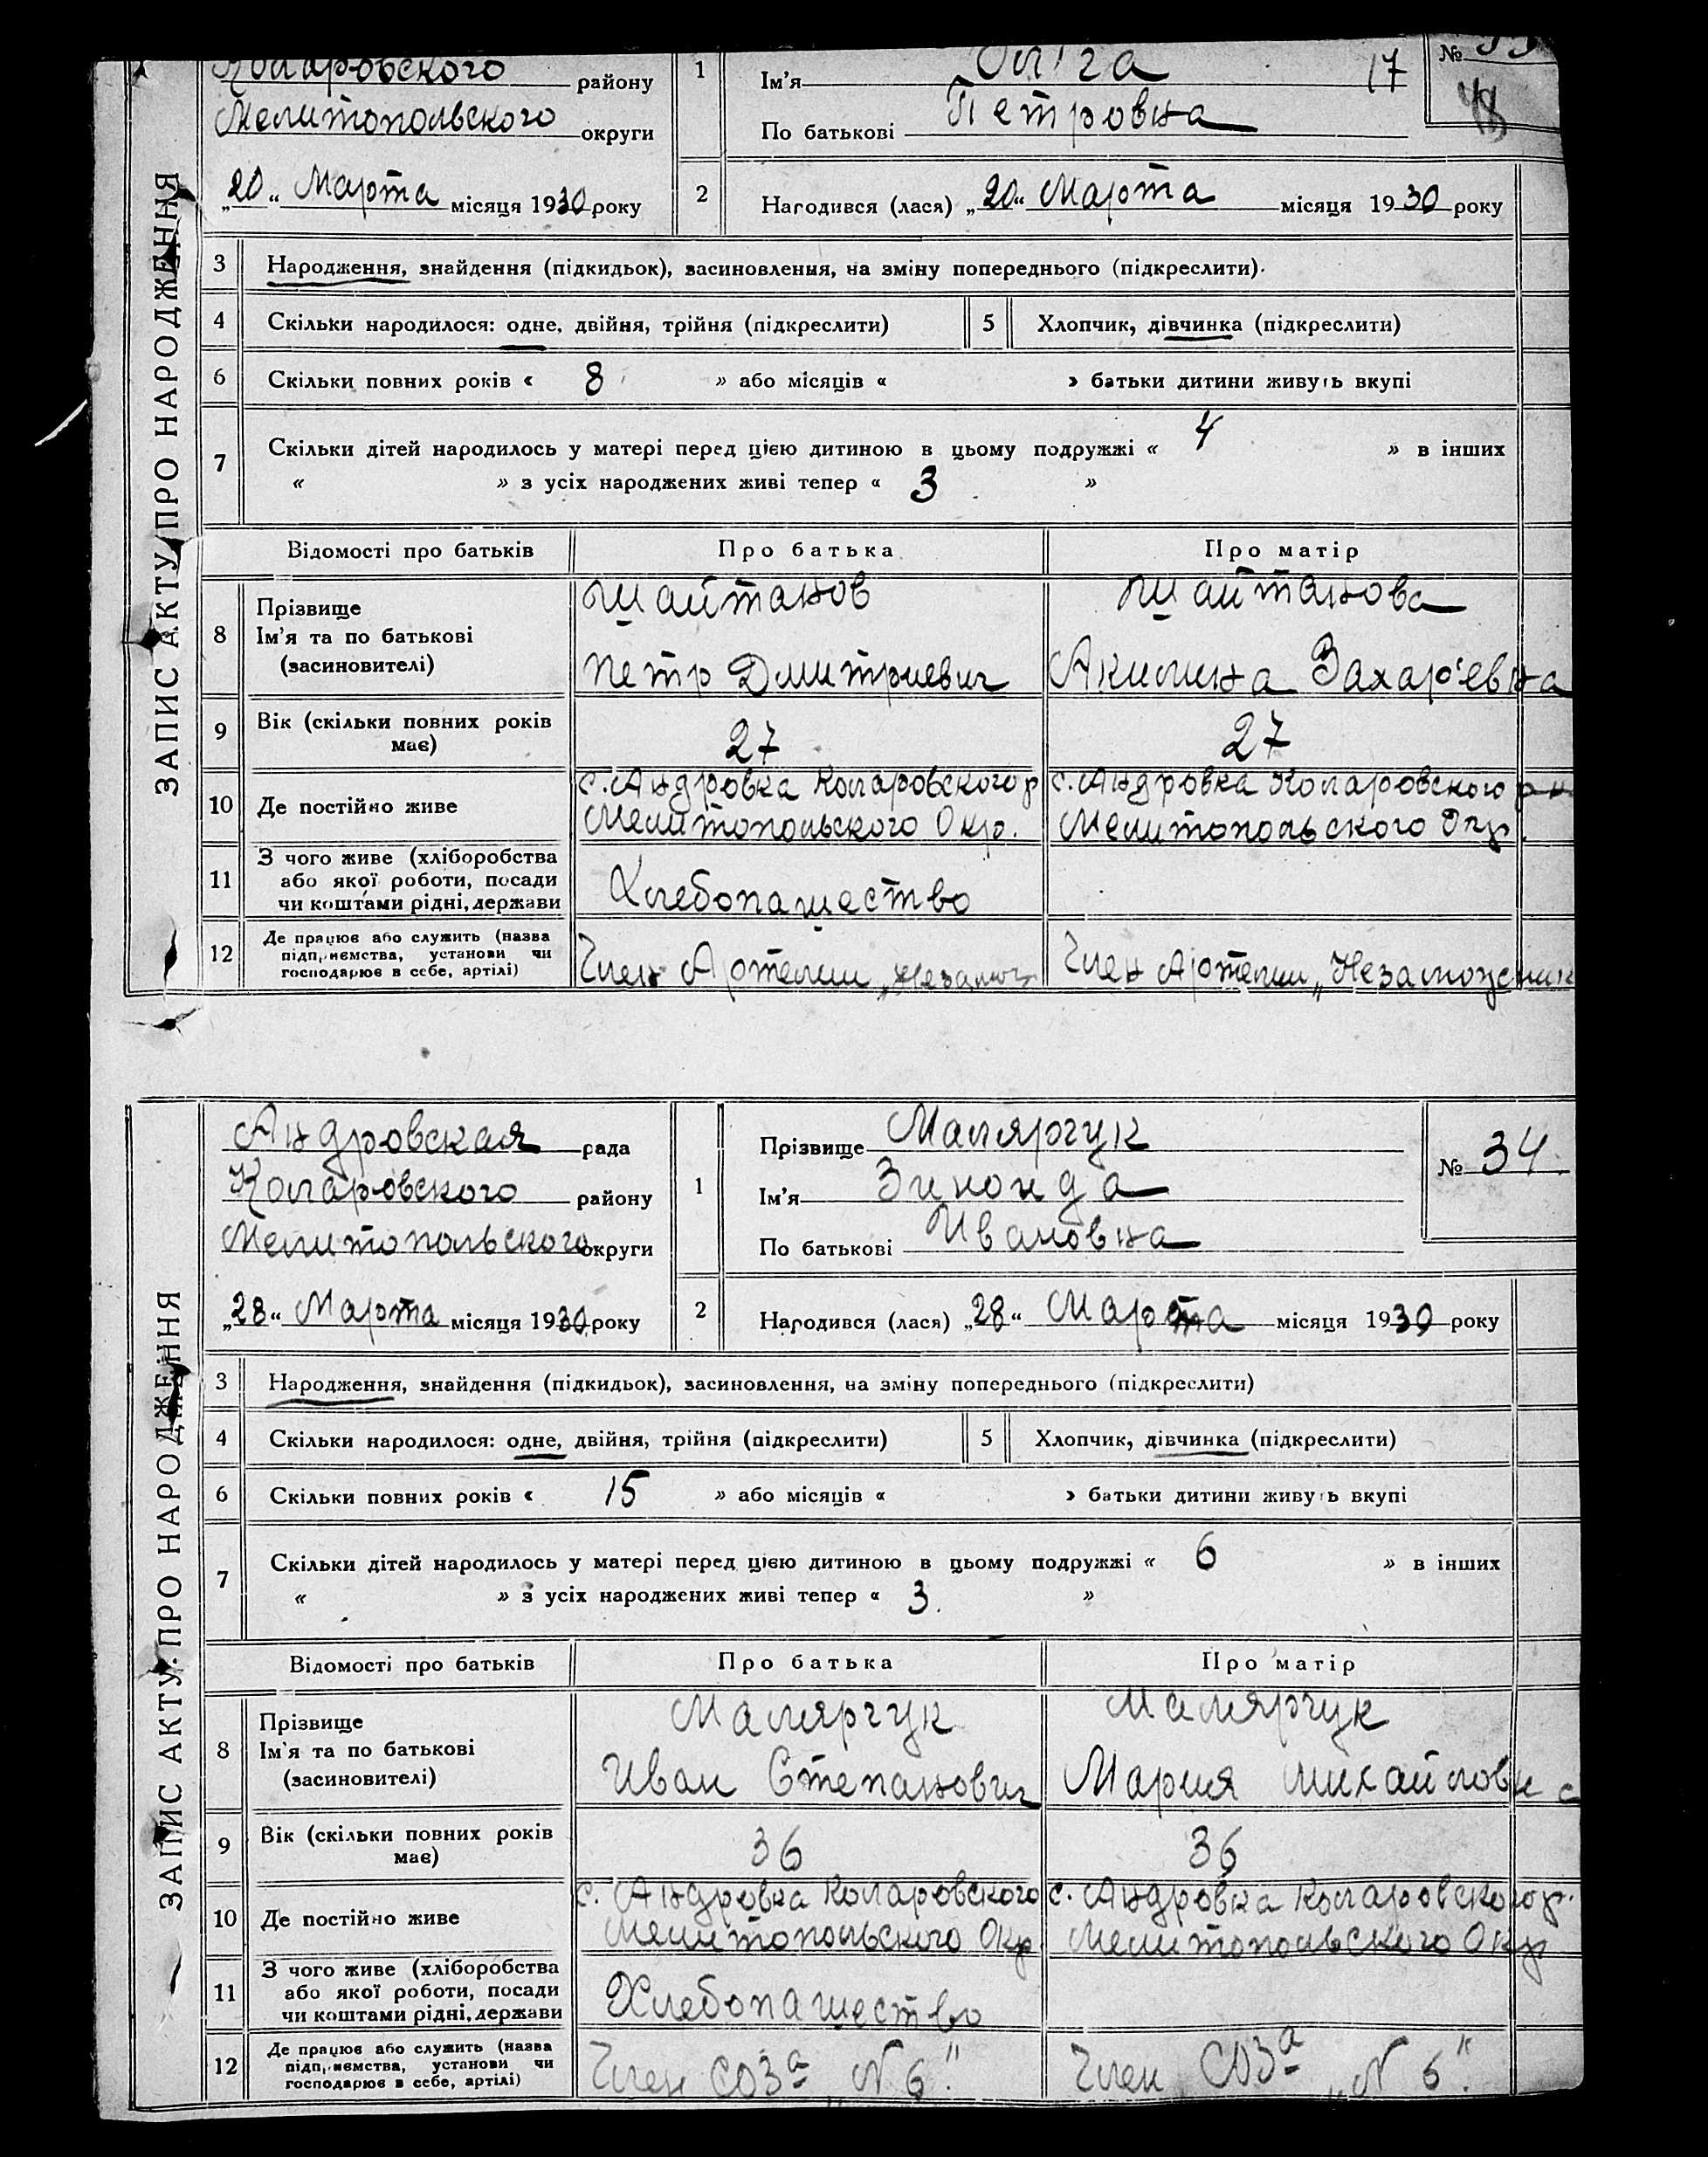 ЗАПИС АКТУ ПРО НАРОДЖЕННЯ
Коларовского району
Мелитопольского округи
„20“ Марта місяця 1930 року
1
Ім'я Ольга 17
По батькові Петровна
№
2
Народився (лася) „20“ Марта місяця 1930 року
3 Народження, знайдення (підкидьок), засиновлення, на зміну попереднього (підкреслити).
4 Скільки народилося: одне, двійня, трійня (підкреслити)
5 Хлопчик, дівчинка (підкреслити)
6 Скільки повних років « 8 » або місяців « » батьки дитини живуть вкупі
7 Скільки дітей народилось у матері перед цією дитиною в цьому подружжі « 4 » в інших
« » з усіх народжених живі тепер « 3 »
Відомості про батьків Про батька Про матір
8 Прізвище
Ім'я та по батькові
(засиновителі)
Шайтанов
Петр Дмитриевич
Шайтанова
Акилина Захарьевна
9 Вік (скільки повних років
має)
27 27
10 Де постійно живе
с. Андровка Коларовского р
Мелитопольского Окр.
с. Андровка Коларовского р-н
Мелитопольского Окр.
11 З чого живе (хліборобства
або якої роботи, посади
чи коштами рідні, держави
Хлебопашество
12 Де працює або служить (назва
підприємства, установи чи
господарює в себе, артілі)
Член Артели „Незамож
Член Артели „Незаможник
ЗАПИС АКТУ ПРО НАРОДЖЕННЯ
Андровская рада
Коларовского району
Мелитопольского округи
„28“ Марта місяця 1930 року
1
Прізвище Малярчук
Ім'я Зинонда
По батькові Ивановна
№ 34
2
Народився (лася) „28“ Марта місяця 1930 року
3 Народження, знайдення (підкидьок), засиновлення, на зміну попереднього (підкреслити)
4 Скільки народилося: одне, двійня, трійня (підкреслити)
5 Хлопчик, дівчинка (підкреслити)
6 Скільки повних років « 15 » або місяців « » батьки дитини живуть вкупі
7 Скільки дітей народилось у матері перед цією дитиною в цьому подружжі « 6 » в інших
« » з усіх народжених живі тепер « 3. »
Відомості про батьків Про батька Про матір
8 Прізвище
Ім'я та по батькові
(засиновителі)
Малярчук
Иван Степанович
Малярчук
Мария Михайловна
9 Вік (скільки повних років
має)
36 36
10 Де постійно живе
с. Андровка Коларовского
Мелитопольского Окр
с. Андровка Коларовского р.
Мелитопольского Окр
11 З чого живе (хліборобства
або якої роботи, посади
чи коштами рідні, держави
Хлебопашество
12 Де працює або служить (назва
підприємства, установи чи
господарює в себе, артілі)
Член СОЗа „№ 6“.
Член СОЗа „№ 6“.